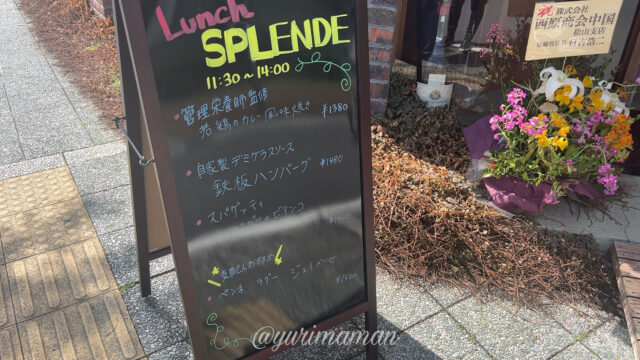 Lunch
SPLENDE
11:30 ~ 14:00
・管理栄養師監修
若鶏のカレー風味焼き ¥1380
・自家製デミグラスソース
鉄板ハンバーグ ¥1480
・スパゲッティ
ビアンコ
おすすめ
・ペンネ ラグー ジェノベーゼ ¥1500
@yurimaman
祝
株式会社
西原商会中国
松山支店